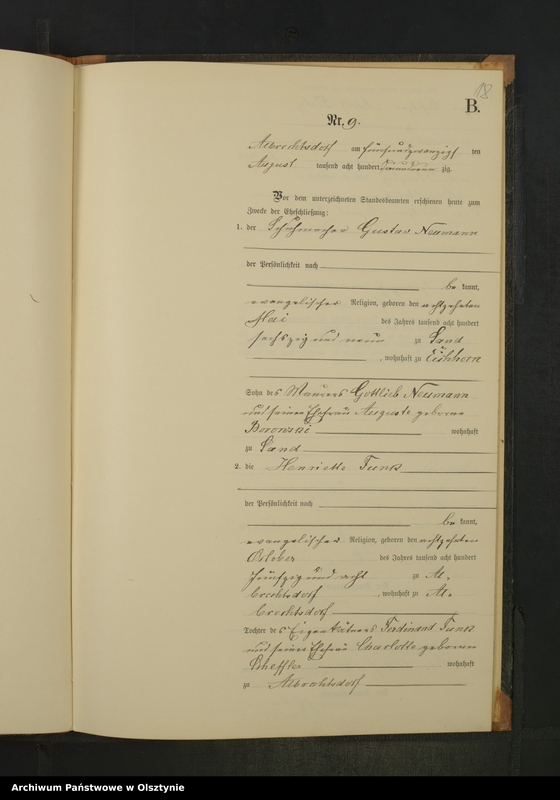 18
B.
Nr. 9.
Albrechtsdorf am fünfundzwanzigsten ten
August tausend acht hundert neunzig.
Vor dem unterzeichneten Standesbeamten erschienen heute zum
Zwecke der Eheschließung:
1. der Schuhmacher Gustav Neumann
der Persönlichkeit nach
be kannt,
evangelischer Religion, geboren den achtzehnten
Mai des Jahres tausend acht hundert
sechszig und neun zu Sand
, wohnhaft zu Eichhorn
Sohn des Maurers Gottlieb Neumann
und seiner Ehefrau Auguste geborne
Borowski wohnhaft
zu Sand
2. die Henriette Funk
der Persönlichkeit nach
be kannt,
evangelischer Religion, geboren den achtzehnten
October des Jahres tausend acht hundert
fünfzig und acht zu Al,
brechtsdorf , wohnhaft zu Al,
brechtsdorf
Tochter des Eigenkätners Ferdinand Funk
und seiner Ehefrau Charlotte geborene
Scheffler wohnhaft
zu Albrechtsdorf
Archiwum Państwowe w Olsztynie